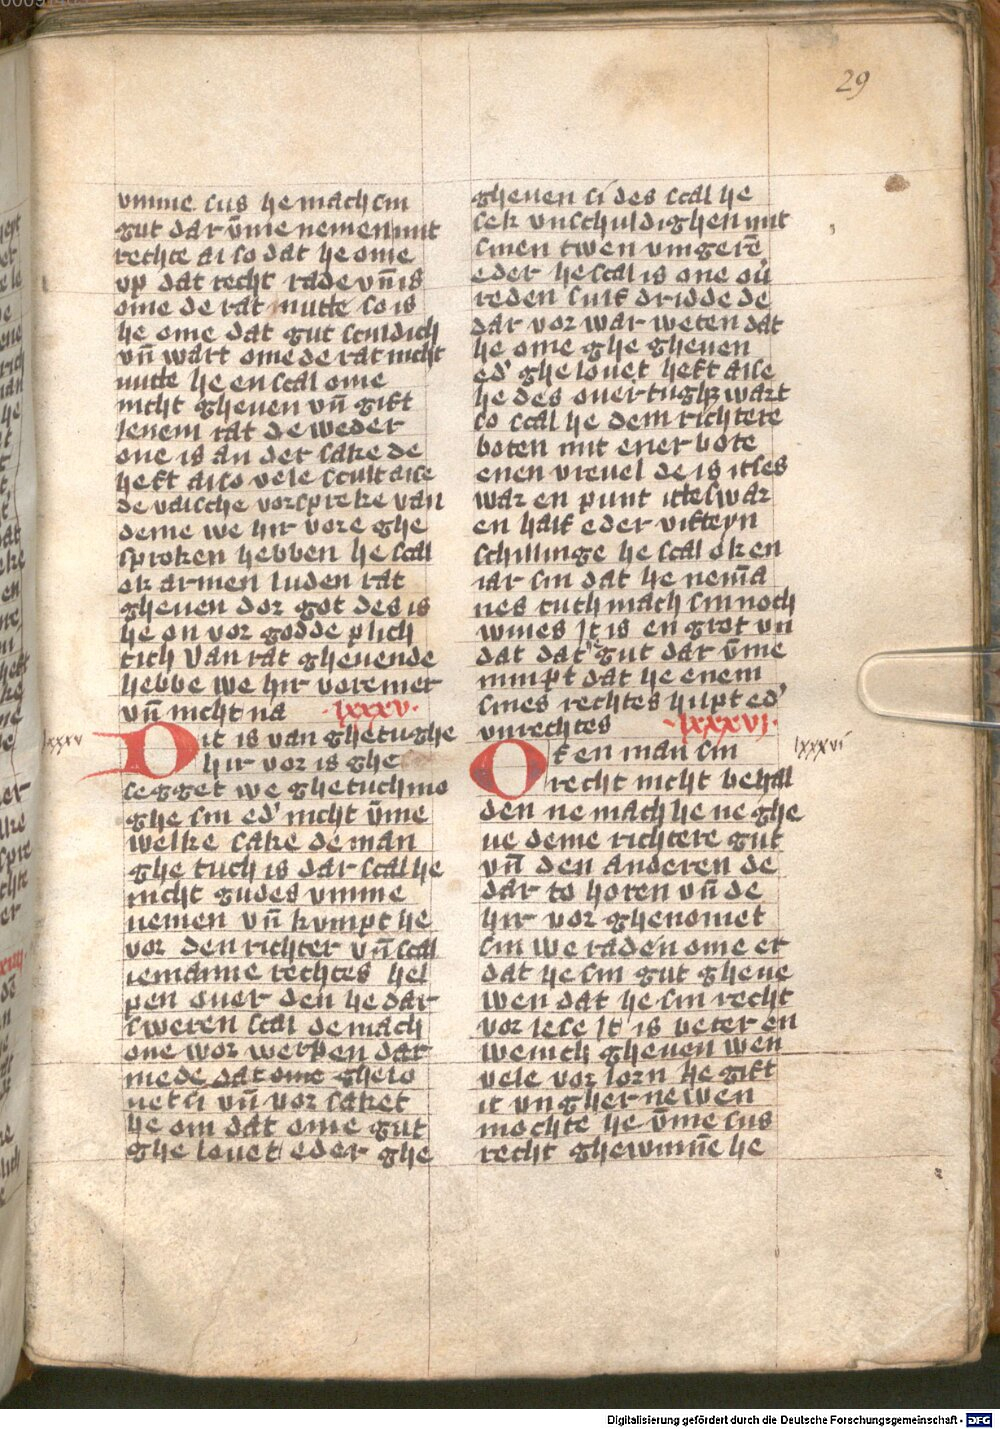 29
vmme sus he mach sin
gut dar vm̄e nemen mit
rechte also dat he ome
vp dat recht rade vn̄ is
ome de rat nutte so is
he ome dat gut sculdich
vn̄ wart ome de rat nicht
nutte he en scal ome
nicht gheuen vn̄ gift
ienem rat de weder
one is an der sake de
heft also vele scult alse
de valsche vorspreke van
deme we hir vore ghe
sproken hebben he scal
ok armen luden rat
gheuen dor got des is
he on vor godde plich
tich Van rat gheuende
hebbe we hir vore mer
vn̄ nicht na lxxxv
lxxxv
Dit is van ghetughe
hir vor is ghe
segget we ghetuch mo
ghe sin ed' nicht vm̄e
welke sake de man
ghe tuch is dar scal he
nicht gudes vmme
nemen vn̄ kvmpt he
vor den richter vn̄ scal
iemanne rechtes hel
pen ouer den he dar
sweren scal de mach
one wor werpen dar
mede dat ome ghelo
uet si vn̄ vor saket
he om dat ome gut
ghe louet eder ghe
gheuen si des scal he
sek vnschuldighen mit
sinen twen vingerē
eder he scal is one ou
reden sulf dridde de
dar vor war weten dat
he ome ghe gheuen
ed' ghe louet heft alse
he des ouertughz wart
so scal he dem richtere
boten mit ener bote
enen vreuel de is itles
war en punt itteswar
en half eder vifteyn
schillinge he scal ok en
iar sin dat he nem̄a
nes tuch mach sin noch
wiues It is en grot vn
dat dat gut dar vm̄e
nimpt dat he enem
sines rechtes hilpt ed'
vnrechtes lxxxvi
lxxxvi
Of en man sin
recht nicht behal
den ne mach he ne ghe
ue deme richtere gut
vn̄ den anderen de
dar to horen vn̄ de
hir vor ghenomet
sin we raden ome er
dat he sin gut gheue
wen dat he sin recht
vor lese It is beter en
wenich gheuen wen
vele vor lorn he gift
it vngherne wen
mochte he vm̄e sus
recht ghewinn̄e he
Digitalisierung gefördert durch die Deutsche Forschungsgemeinschaft - DFG